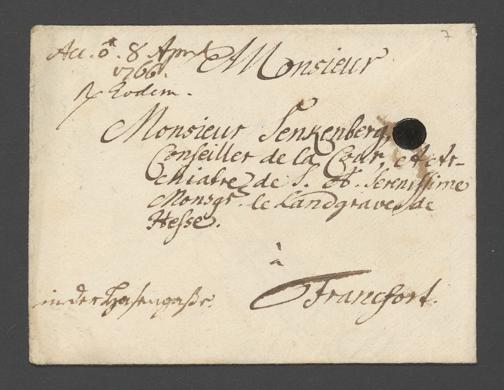 7
Acc. d. 8 Apr.
1766.
Monsieur
Rx Eodem.
Monsieur Senkenberg
Conseiller de la Cour, et Ar-
chiatre de S. A. Serenissime
Monsgr. le Landgrave de
Hesse.
à
in der Hasengaße.
Francfort.